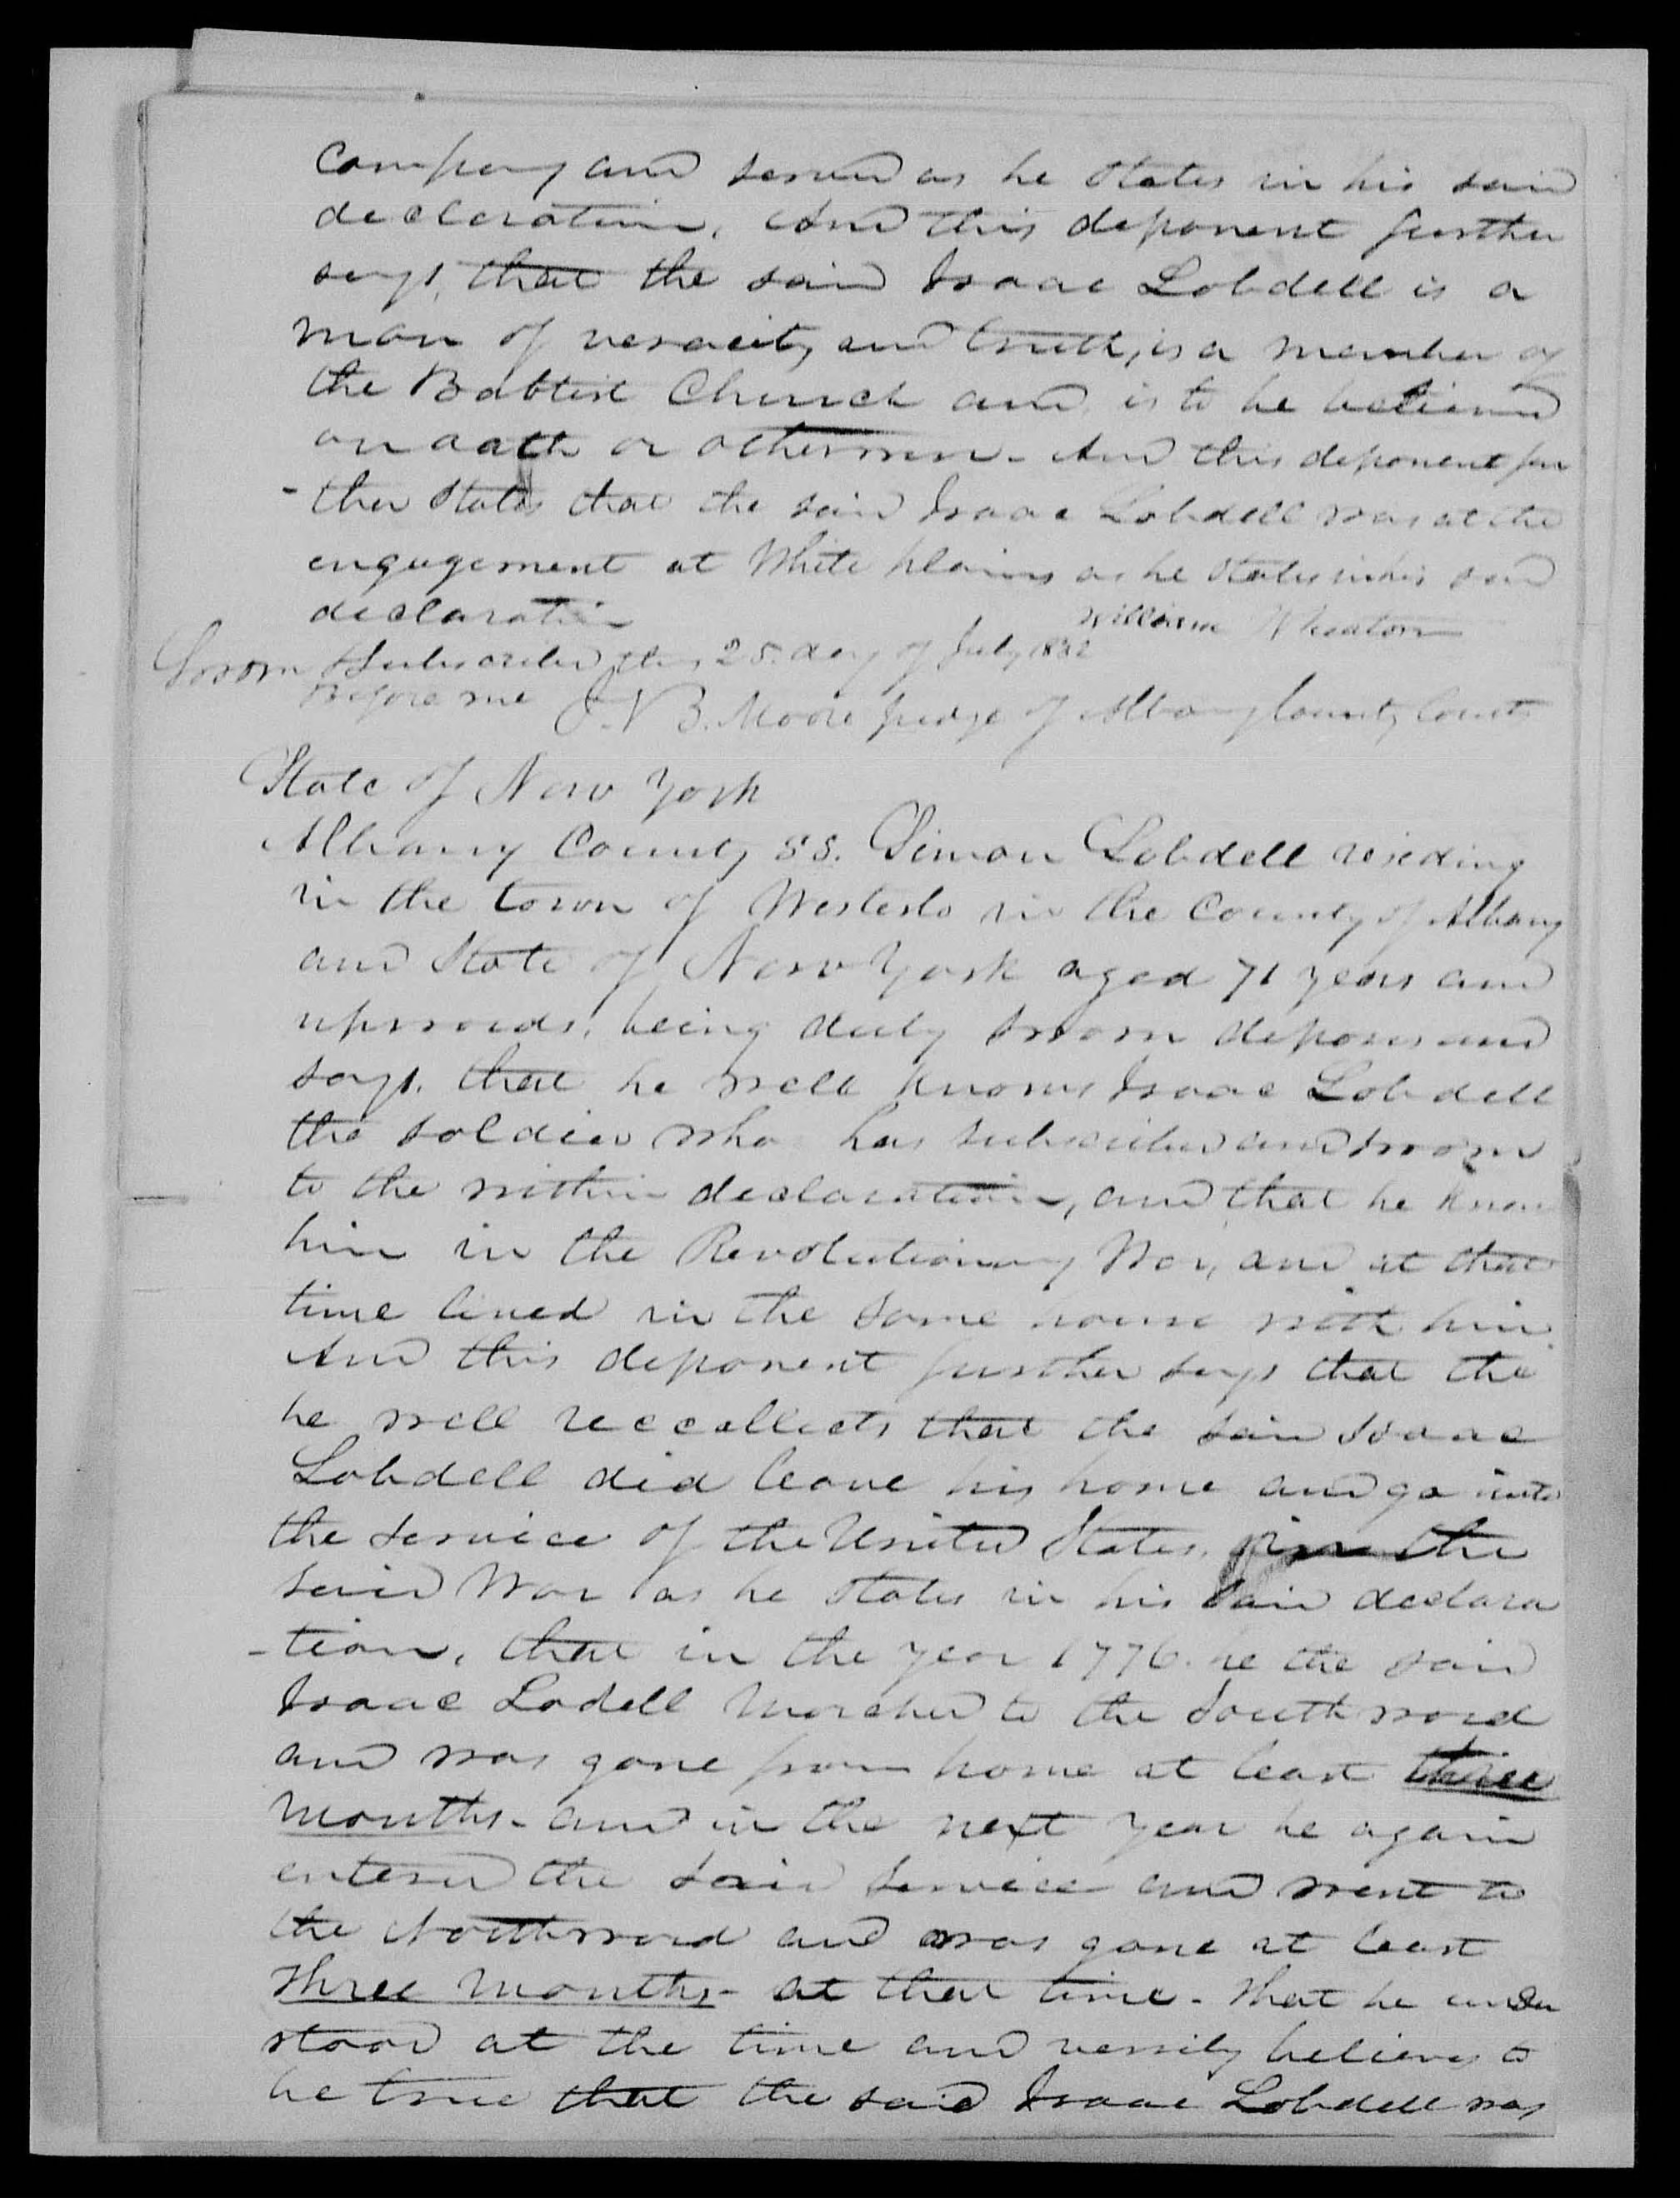 Company and served as he States in his said
declaration, And this deponent further
says, that the said Isaac Lobdell is a
man of veracity and truth, is a member of
the Babtist Church and is to be believed
on oath or otherwise - And this deponent fur
-ther States that the said Isaac Lobdell was at the
engagement at White plains as he States in his said
declaration
William Wheaton
Sworn & Subscribed this 25. day of July 1832
Before me J. V B. Moore judge of Albany County Courts
State of New York
Albany County SS. Simon Lobdell residing
in the town of Westerlo in the County of Albany
and State of New York aged 71 years and
upwards, being duly sworn deposes and
says, that he well knows Isaac Lobdell
the soldier who has subscribed and sworn
to the within declaration, and that he knew
him in the Revolutionary War, and at that
time lived in the same house with him
And this deponent further says that the
he well reccollects that the said Isaac
Lobdell did leave his home and go into
the Service of the United States, in the
said War as he States in his said declara
-tion, that in the year 1776. he the said
Isaac Lodell marched to the Southward
and was gone from home at least three
months - and in the next year he again
entered the said service and went to
the Northward and was gone at least
three months - at that time - that he under
stood at the time and verrily believes to
be true that the said Isaac Lobdell was